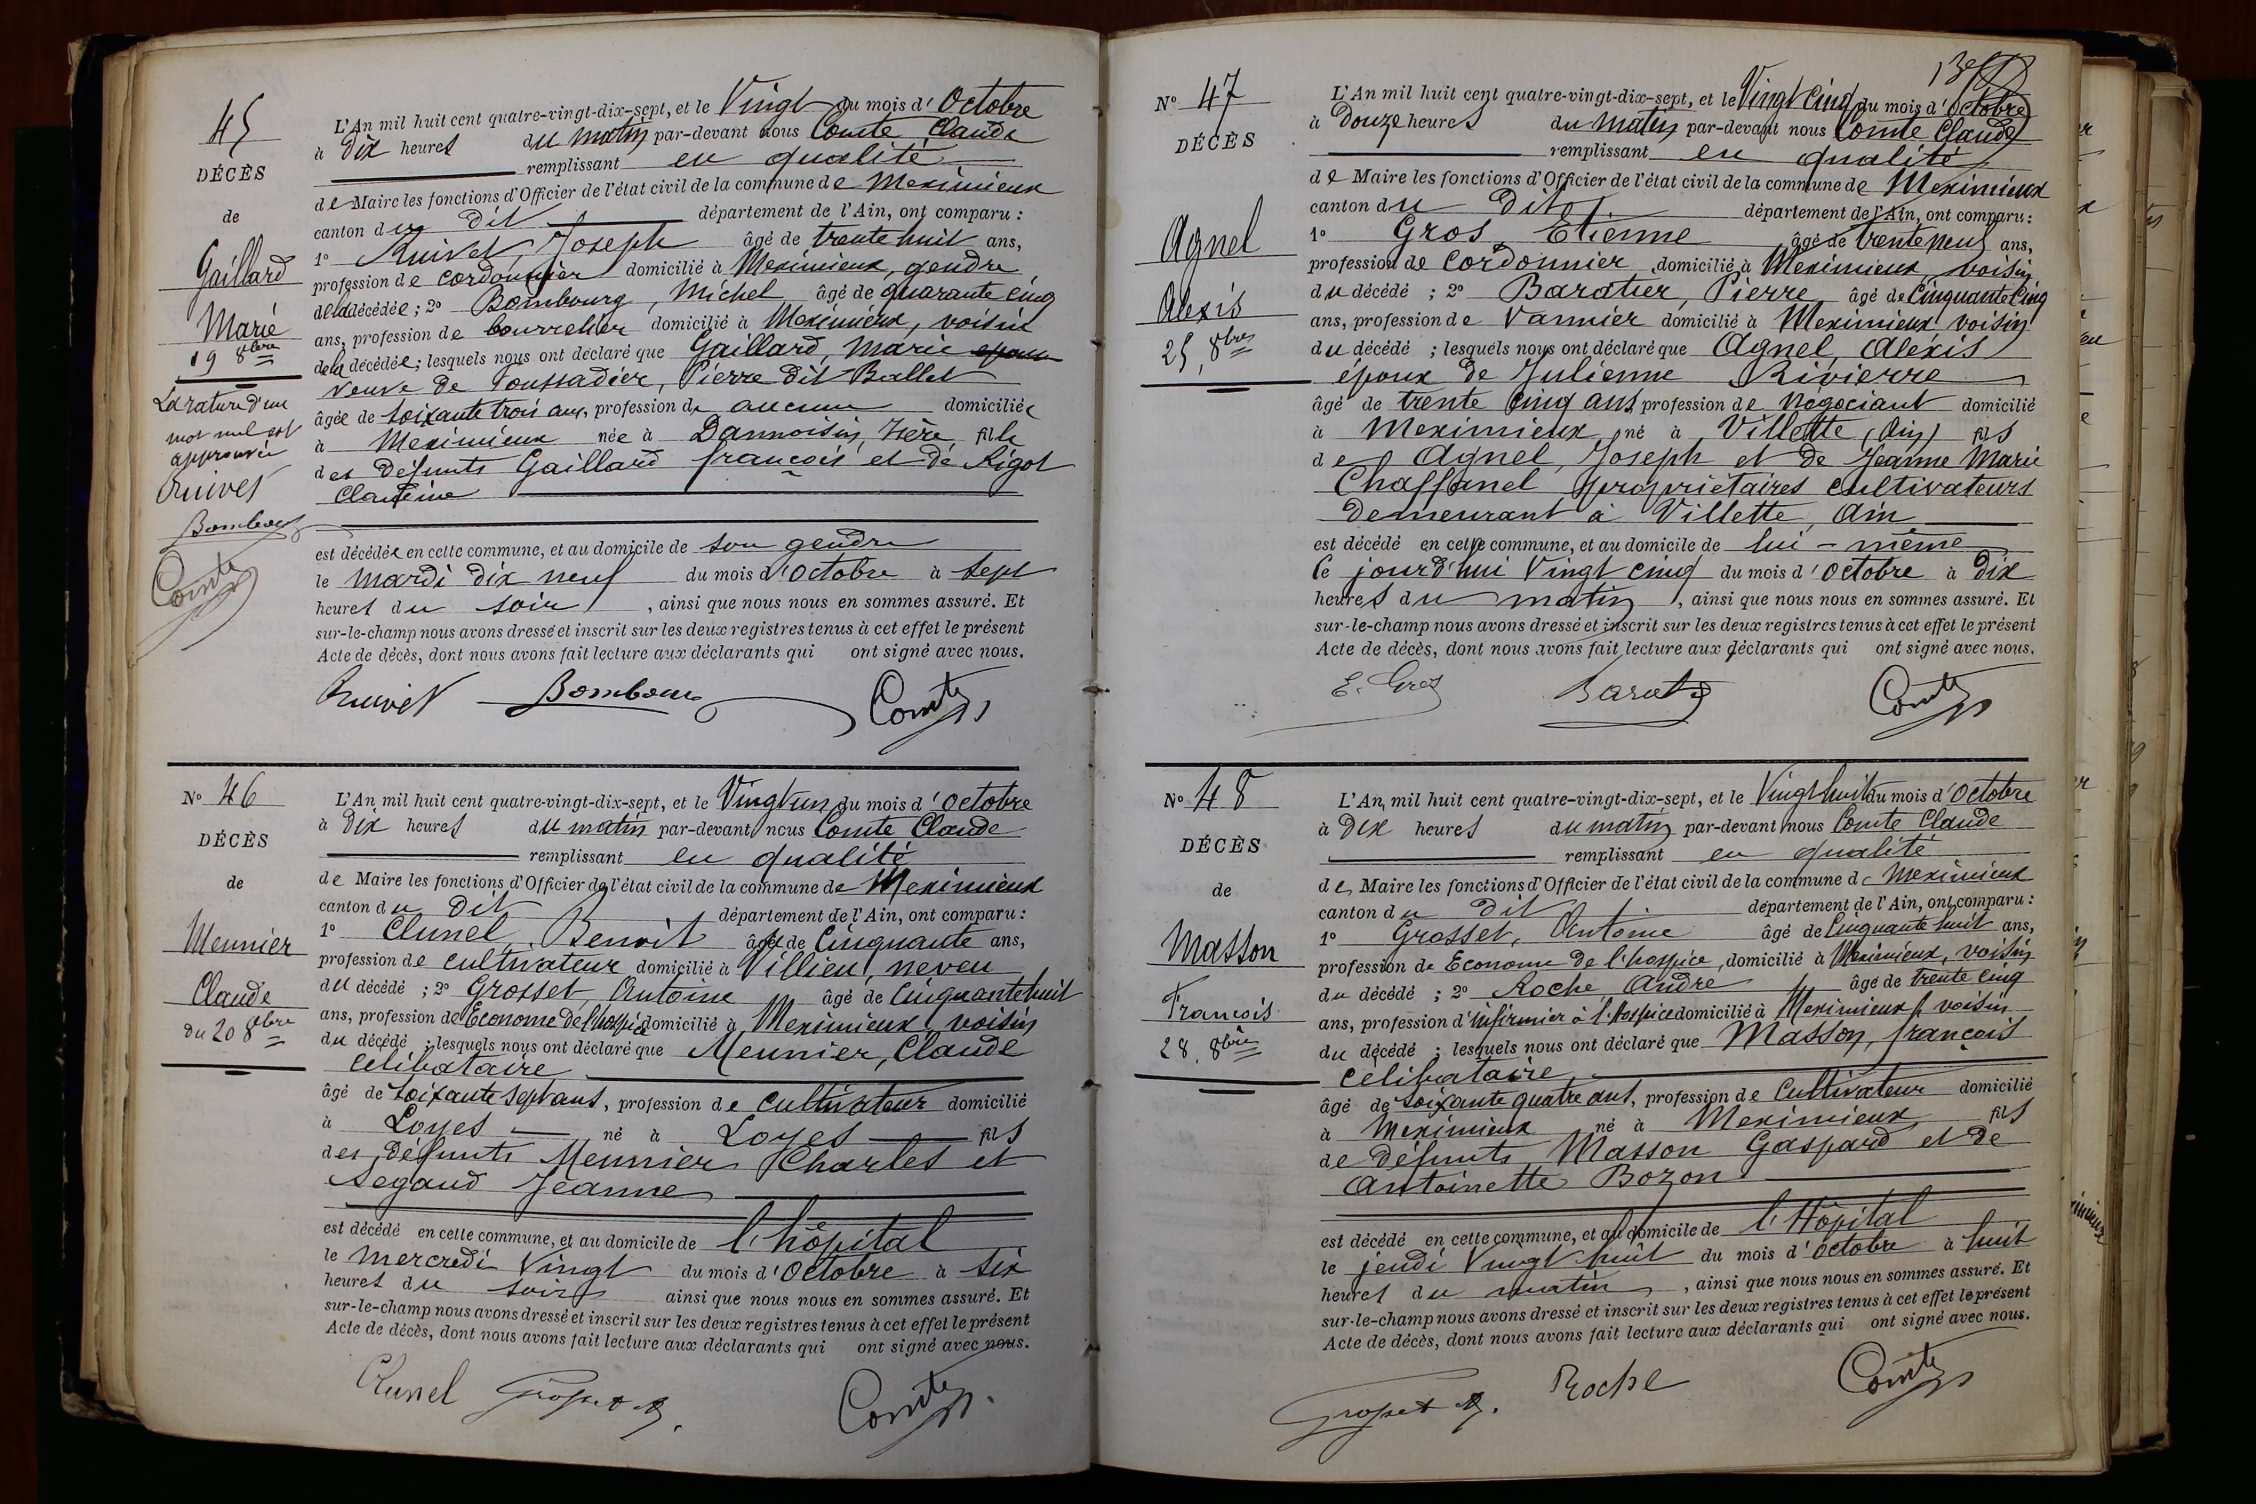 45
DÉCÈS
de
Gaillard
Marie
19 8bre
La rature d'un
mot nul est
approuvée
Ruivet
Bombourg
Comte
L'An mil huit cent quatre-vingt-dix-sept, et le Vingt du mois d'Octobre
à Dix heures du matin par-devant nous Comte Claude
remplissant en qualité
de Maire les fonctions d'Officier de l'état civil de la commune de Meximieux
canton du dit département de l'Ain, ont comparu :
1º Ruivet, Joseph âgé de trente huit ans,
profession de cordonnier domicilié à Meximieux, gendre
de la décédée ; 2º Bombourg, Michel âgé de quarante cinq
ans, profession de bourrelier domicilié à Meximieux, voisin
de la décédée ; lesquels nous ont déclaré que Gaillard, Marie epouse
veuve de Toussadier, Pierre dit Ballet
âgée de soixante trois ans, profession de aucune domiciliée
à Meximieux née à Dannoisin, Isère, fille
des défunts Gaillard françois et de Rigot
Claudine
est décédée en cette commune, et au domicile de son gendre
le mardi dix neuf du mois d'Octobre à sept
heures du soir, ainsi que nous nous en sommes assuré. Et
sur-le-champ nous avons dressé et inscrit sur les deux registres tenus à cet effet le présent
Acte de décès, dont nous avons fait lecture aux déclarants qui ont signé avec nous.
Ruivet Bombourg Comte
Nº 46
DÉCÈS
de
Meunier
Claude
du 20 8bre
L'An mil huit cent quatre-vingt-dix-sept, et le Vingt un du mois d'Octobre
à Dix heures du matin par-devant nous Comte Claude
remplissant en qualité
de Maire les fonctions d'Officier de l'état civil de la commune de Meximieux
canton du dit département de l'Ain, ont comparu :
1º Clunel, Benoit âgé de Cinquante ans,
profession de cultivateur domicilié à Villieu, neveu
du décédé ; 2º Grosset, Antoine âgé de Cinquante huit
ans, profession de Econome de l'hospice domicilié à Meximieux, voisin
du décédé ; lesquels nous ont déclaré que Meunier, Claude
célibataire
âgé de soixante sept ans, profession de cultivateur domicilié
à Loyes né à Loyes fils
des défunts Meunier Charles et
Segaud Jeanne
est décédé en cette commune, et au domicile de l'hôpital
le mercredi Vingt du mois d'Octobre à six
heures du soir ainsi que nous nous en sommes assuré. Et
sur-le-champ nous avons dressé et inscrit sur les deux registres tenus à cet effet le présent
Acte de décès, dont nous avons fait lecture aux déclarants qui ont signé avec nous.
Clunel Grosset A. Comte
Nº 47
DÉCÈS
Agnel
Alexis
25, 8bre
L'An mil huit cent quatre-vingt-dix-sept, et le Vingt Cinq du mois d'Octobre
à Douze heures du matin par-devant nous Comte Claude
remplissant en qualité
de Maire les fonctions d'Officier de l'état civil de la commune de Meximieux
canton du dit département de l'Ain, ont comparu :
1º Gros Etienne âgé de trente neuf ans,
profession de Cordonnier domicilié à Meximieux, voisin
du décédé ; 2º Baratier, Pierre âgé de Cinquante Cinq
ans, profession de Vannier domicilié à Meximieux voisin
du décédé ; lesquels nous ont déclaré que Agnel, Alexis
époux de Julienne Rivierre
âgé de trente cinq ans, profession de Négociant domicilié
à Meximieux, né à Villette, (Ain) fils
de Agnel, Joseph et de Jeanne Marie
Chaffanel propriétaires cultivateurs
demeurant à Villette, Ain
est décédé en cette commune, et au domicile de lui-même
le jourd'hui Vingt cinq du mois d'Octobre à Dix
heures du matin, ainsi que nous nous en sommes assuré. Et
sur-le-champ nous avons dressé et inscrit sur les deux registres tenus à cet effet le présent
Acte de décès, dont nous avons fait lecture aux déclarants qui ont signé avec nous.
E. Gros Baratier Comte
Nº 48
DÉCÈS
de
Masson
François
28, 8bre
L'An mil huit cent quatre-vingt-dix-sept, et le Vingt huit du mois d'Octobre
à Dix heures du matin par-devant nous Comte Claude
remplissant en qualité
de Maire les fonctions d'Officier de l'état civil de la commune de Meximieux
canton du dit département de l'Ain, ont comparu :
1º Grosset, Antoine âgé de Cinquante huit ans,
profession de Econome de l'hospice, domicilié à Meximieux, voisin
du décédé ; 2º Roche, André âgé de trente cinq
ans, profession d'infirmier à l'hospice domicilié à Meximieux, voisin
du décédé ; lesquels nous ont déclaré que Masson, françois
célibataire
âgé de soixante quatre ans, profession de Cultivateur domicilié
à Meximieux né à Meximieux fils
de défunts Masson Gaspard et de
Antoinette Bozon
est décédé en cette commune, et au domicile de l'Hôpital
le jeudi Vingt huit du mois d'Octobre à huit
heures du matin, ainsi que nous nous en sommes assuré. Et
sur-le-champ nous avons dressé et inscrit sur les deux registres tenus à cet effet le présent
Acte de décès, dont nous avons fait lecture aux déclarants qui ont signé avec nous.
Grosset A. Roche Comte